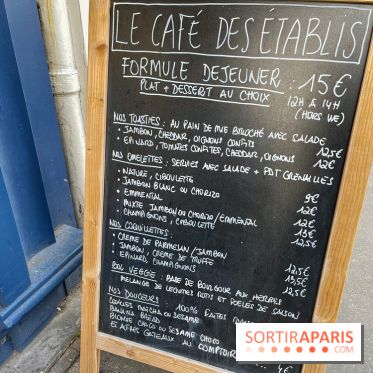 LE CAFÉ DES ÉTABLIS
FORMULE DEJEUNER : 15€
PLAT + DESSERT AU CHOIX
12H À 14H
(HORS WE)
NOS TOASTIES : AU PAIN DE MIE BRIOCHÉ AVEC SALADE
• JAMBON, CHEDDAR, OIGNONS CONFITS 12,5€
• EPINARD, TOMATES CONFITES, CHEDDAR, OIGNONS 12€
NOS OMELETTES : SERVIES AVEC SALADE + PDT GRENAILLES
• NATURE, CIBOULETTE 9€
• JAMBON BLANC OU CHORIZO 12€
• EMMENTAL 12€
• MIXTE JAMBON OU CHORIZO/EMMENTAL 13€
• CHAMPIGNONS, CIBOULETTE 12,5€
NOS COQUILLETTES :
• CREME DE PARMESAN/JAMBON 12,5€
• JAMBON, CREME DE TRUFFE 13,5€
• EPINARD, CHAMPIGNONS 12,5€
BOL VEGGIE : BASE DE BOULGOUR AUX HERBES
MELANGE DE LEGUMES ROTIS ET POELÉS DE SAISON
NOS DOUCEURS : 100% FAITES
COOKIES MATCHA OU SESAME
BANANA BREAD
BLONDIE CHOCO OU SESAME CHOCO
ET AUTRES GATEAUX AU COMPTOIR
4€
SORTIRAPARIS
.COM